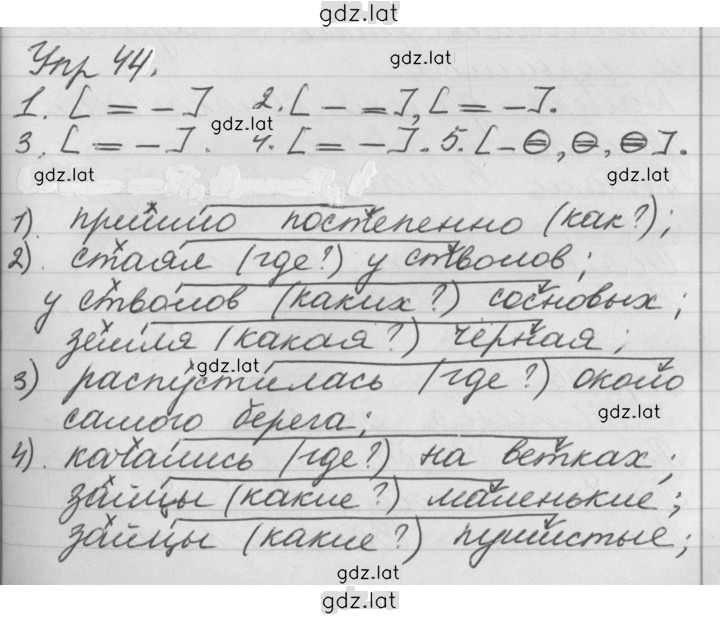 gdz.lat
Упр 44.
gdz.lat
1. [ = – ]. 2. [ – = ], [ = – ].
gdz.lat
3. [ = – ]. 4. [ = – ]. 5. [ – ⊖, ⊖, ⊖ ].
gdz.lat gdz.lat
1). пришло постепенно (как?);
2). стаял (где?) у стволов;
у стволов (каких?) сосновых;
земля (какая?) чёрная;
gdz.lat
3) распустилась (где?) около
gdz.lat
самого берега;
4). качались (где?) на ветках;
зайцы (какие?) маленькие;
зайцы (какие?) пушистые;
gdz.lat
gdz.lat